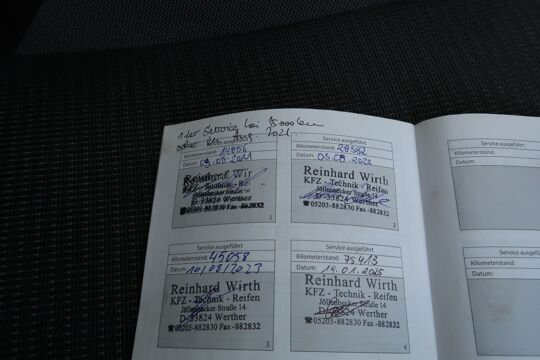 1.ter Service bei 15.000 km
oder bis Aug. 2021.
Service ausgeführt
Kilometerstand: 14856
Datum: 09.08.2021
Reinhard Wir
KFZ - Technik - Reifen
Jöllenbecker Straße 14
D-33824 Werther
☎05203-882830 Fax -882832
1
Service ausgeführt
Kilometerstand: 28582
Datum: 05.09.2022
Reinhard Wirth
KFZ - Technik - Reifen
Jöllenbecker Straße 14
D-33824 Werther
☎05203-882830 Fax -882832
2
Service ausgeführt
Kilometerstand: 45058
Datum: 10/08/2023
Reinhard Wirth
KFZ - Technik - Reifen
Jöllenbecker Straße 14
D-33824 Werther
☎05203-882830 Fax -882832
3
Service ausgeführt
Kilometerstand: 75413
Datum: 14.01.2025
Reinhard Wirth
KFZ - Technik - Reifen
Jöllenbecker Straße 14
D-33824 Werther
☎05203-882830 Fax -882832
4
Service ausgeführt
Kilometerstand:
Datum:
Service ausgeführt
Kilometerstand:
Datum: